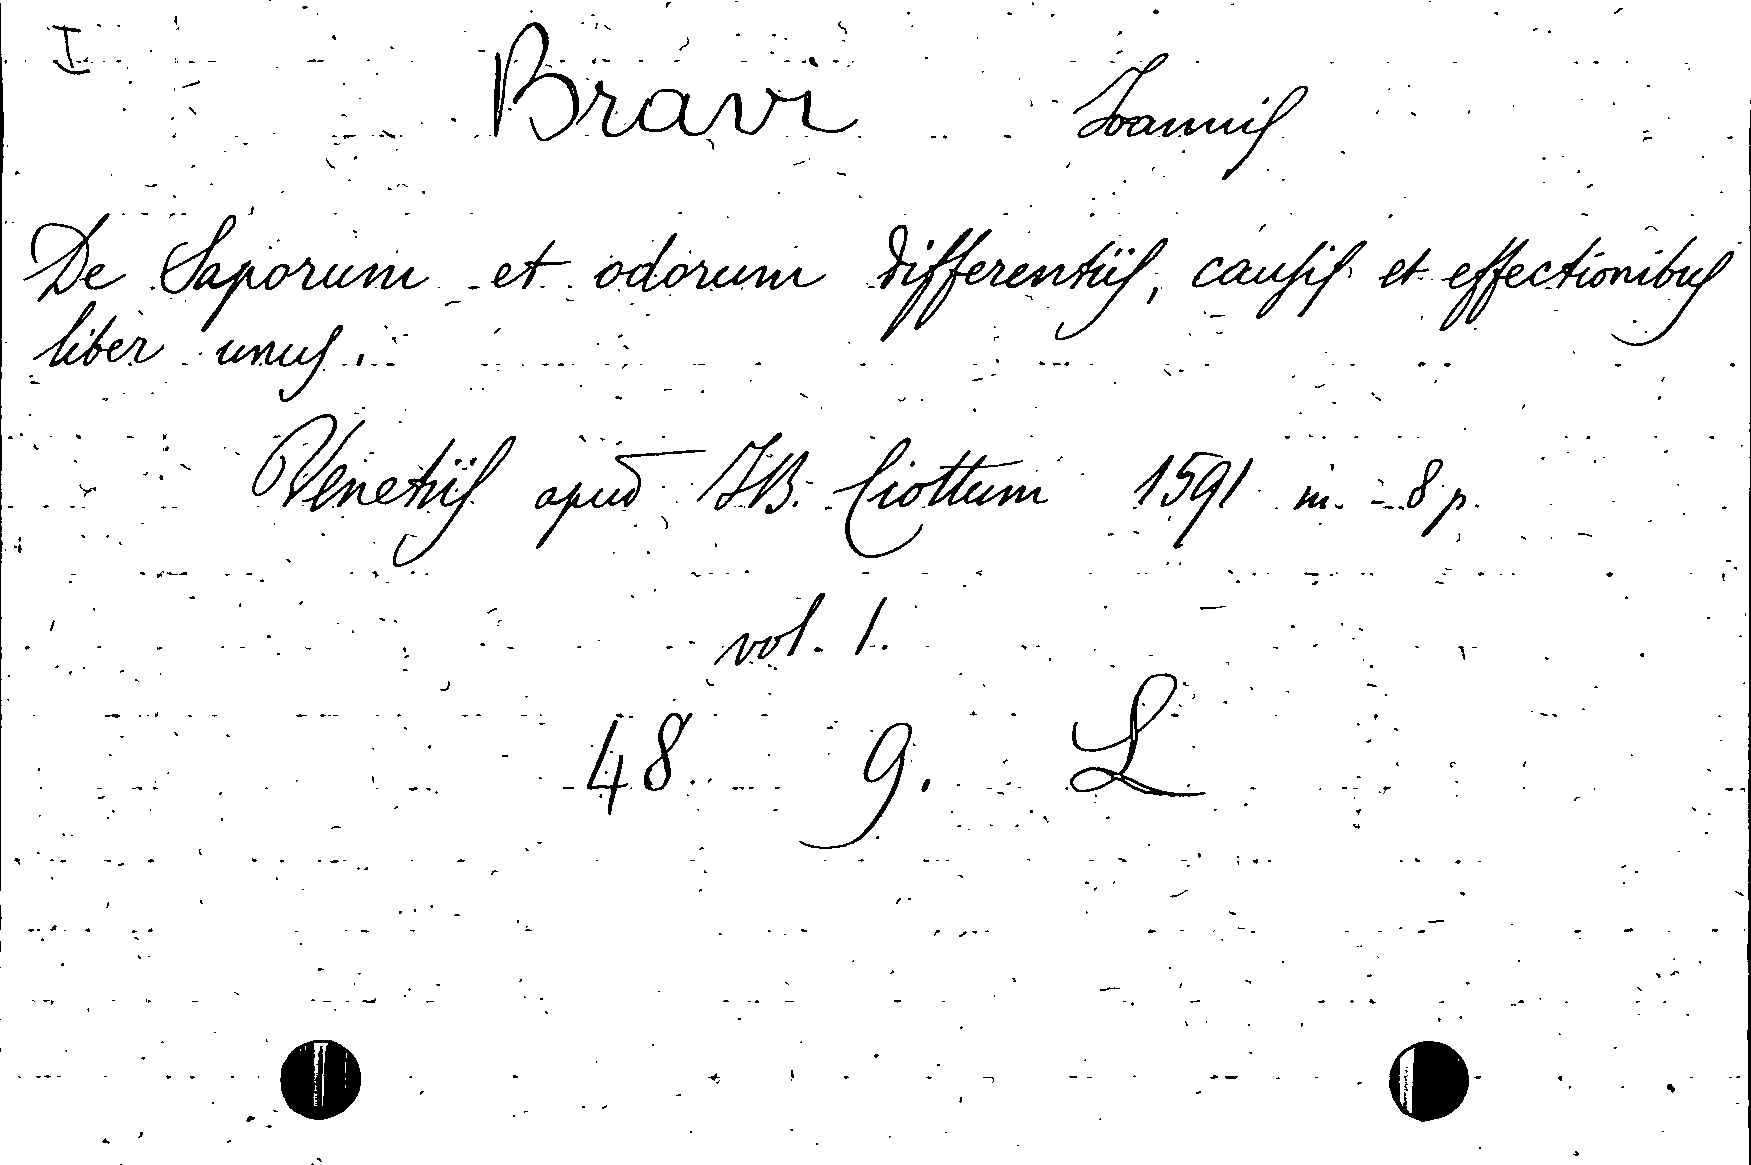 I
Bravi Ioannis
De Saporum et odorum differentiis, causis et effectionibus
liber unus.
Venetiis apud IB. Ciottum 1591 in. - 8 p.
vol. 1.
48 9. L